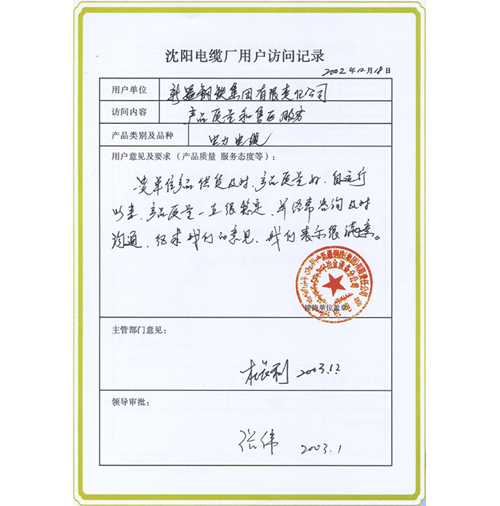 沈阳电缆厂用户访问记录
2002年12月18日
用户单位 新疆钢铁集团有限责任公司
访问内容 产品质量和售后服务
产品类别及品种 电力电缆
用户意见及要求（产品质量 服务态度等）：
贵单位产品供货及时，产品质量好，自运行
以来，产品质量一直很稳定，并经常咨询及时
沟通，征求我们的意见，我们表示很满意。
接待单位盖章
主管部门意见：
2003.12
领导审批：
张伟 2003.1